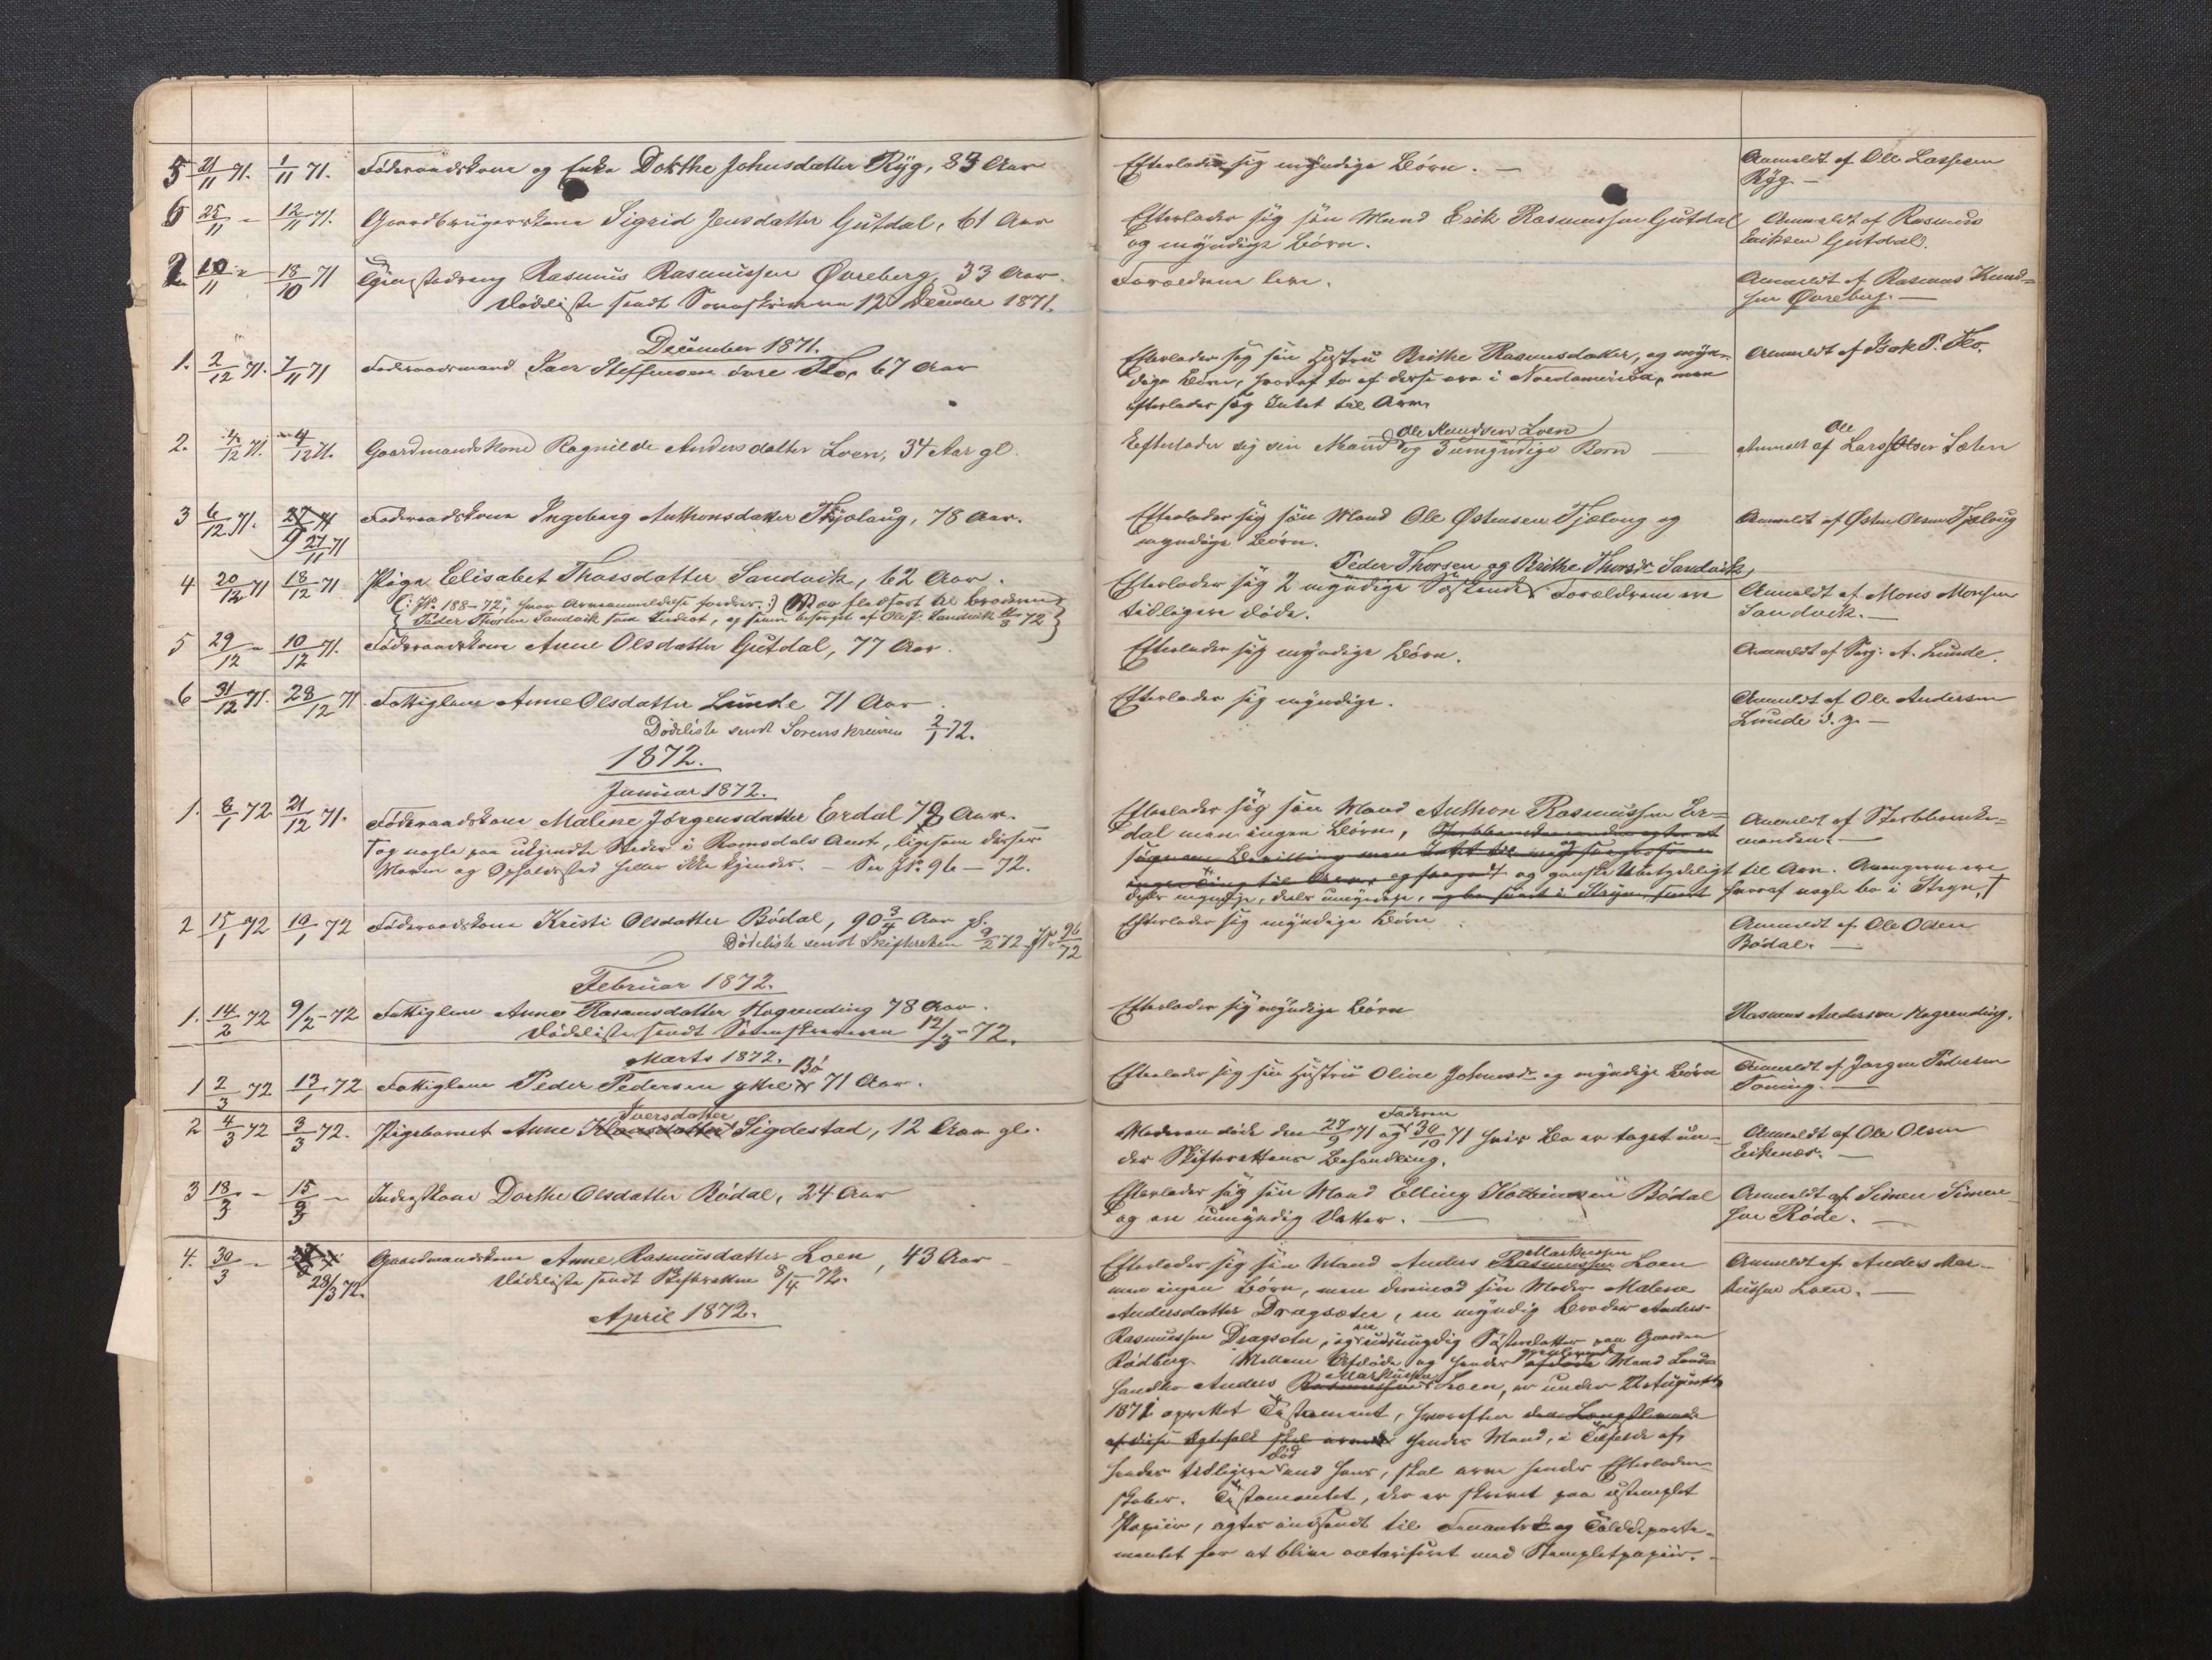 5 21/11 71. 1/11 71. Føderaadskone og Enke Dorthe Johnsdatter Ryg, 83 Aar
Efterlader sig myndige Børn. —
Anmeldt af Ole Lassesen
Ryg —
6 25/11 - 12/11 71. Gaardbrugerskone Sigrid Jensdatter Gutdal, 61 Aar
Efterlader sig sin Mand Erik Rasmussen Gutdal
og myndige Børn.
Anmeldt af Rasmus
Eriksen Gutdal.
18/10 71 Tjenestedreng Rasmus Rasmussen Øvreberg, 33 Aar
Dødeliste sendt Sorenskriveren 12 December 1871.
Forældrene leve.
Anmeldt af Rasmus Knud=
sen Øvreberg. —
December 1871.
1. 2/12 71. 7/11 71 Føderaadsmand Steffensen övre Flo, 67 Aar
Efterlader sig sin Hustru Brithe Rasmusdatter, og myn-
dige Børn, hvoraf to af disse ere i Nordamerika, men
efterlader sig Intet til Arv.
Anmeldt af Isak P. Flo.
2. 4/12 71. 4/12 71. Gaardmandskone Ragnilde Andersdatter Loen, 34 Aar gl.
Ole Knudsen Loen
Efterlader sig sin Mand og 3 umyndige Børn —
Ole
Anmeldt af Lars Olsen Sæten
3 6/12 71. 27 71
9 27/11 71
Føderaadskone Ingeborg Anthonsdatter Tjælaug, 78 Aar.
Efterlader sig sin Mand Ole Østensen Tjælaug og
myndige Børn.
Anmeldt af Østen Olsen Tjælaug
4 20/12 71 18/12 71 Pige Elisabet Thorsdatter Sandvik, 62 Aar.
(: No. 188-72, hvor Arveanmeldelse fordres :) var fledført til Broderen
Peder Thorsen Sandvik som Indiot, og senere besørget af Ole P. Sandvik 72
Peder Thorsen og Brithe Thorsdr Sandvik
Efterlader sig 2 myndige Søskende, Forældrene ere
tidligere døde.
Anmeldt af Mons Monsen
Sandvik. —
5 29/12 - 10/12 71. Føderaadskone Anne Olsdatter Gutdal, 77 Aar.
Efterlader sig myndige Børn.
Anmeldt af Serg: A. Lunde.
6 31/12 71. 28/12 71. Fattiglem Anne Olsdatter Lunde 71 Aar.
Dødeliste sendt Sorenskriveren 2/1 72.
Efterlader sig myndige.
Anmeldt af Ole Andersen
Lunde d. y. —
1872.
Januar 1872.
1. 8/1 72 21/12 71. Føderaadskone Malene Jørgensdatter Erdal 78 Aar.
† og nogle paa ukjendte Steder i Romsdals Amt, ligesom disses
Navne og Opholdssted heller ikke kjendes. — See No. 96 — 72.
Efterlader sig sin Mand Anthon Rasmussen Er=
dal men ingen Børn,
og ganske Ubetydeligt til Arv. Arvingerne ere
dels myndige, dels umyndige, hvoraf nogle bo i Stryn, †
Anmeldt af Sterbboenke=
manden. —
2 15/1 72 10/1 72 Føderaadskone Kristi Olsdatter Bødal, 90 3/4 Aar gl.
Dødeliste sendt Skifteretten 9/2 72 No. 96/72
Efterlader sig myndige Børn.
Anmeldt af Ole Olsen
Bødal. —
Februar 1872.
1. 14/2 72 9/2 -72 Fattiglem Anne Rasmusdatter Hogrending 78 Aar.
Dødeliste sendt Sorenskriveren 12/3 72.
Efterlader sig myndige Børn
Rasmus Andersen Hogrending.
Marts 1872.
1 2/3 72 13/1 72 Fattiglem Peder Pedersen ytre Bø 71 Aar.
Efterlader sig sin Hustru Oline Johnsdr og myndige Børn
Anmeldt af Jørgen Pedersen
Toning. —
Iversdatter
2 4/3 72 3/3 72. Pigebarnet Anne Klausdatter Sigdestad, 12 Aar gl.
Faderen
Moderen døde den 27/9 71 og 30/10 71 hvis Bo er taget un-
der Skifterettens Behandling.
Anmeldt af Ole Olsen
Eikenæs. —
3 18/3 - 15/3 - Inderstkone Dorthe Olsdatter Bødal, 24 Aar
Efterlader sig sin Mand Elling Kolbeinsen Bødal
og en umyndig Datter. —
Anmeldt af Simen Simen-
sen Røde. —
4. 30/3 - 28/3 72. Gaardmandskone Anne Rasmusdatter Loen, 43 Aar
Dødeliste sendt Skifteretten 8/4 -72.
April 1872.
Markussen
Efterlader sig sin Mand Anders Rasmussen Loen
men ingen Børn, men derimod sin Moder Malene
Andersdatter Dragsæter, en myndig Broder Anders
Rasmussen Dragsæter, og en umyndig Søsterdatter paa Gaarden
Rødberg. Mellem Afdøde og hendes gjenlevende Mand Land=
handler Anders Rasmussen Markussen Loen, er under 22 August
1871 oprettet Testament, hvorefter den Længstlevende
af disse Egtefolk skal arve hendes Mand, i Tilfælde af
hendes tidligere Død end hans, skal arve hendes Efterladen=
skaber. Testamentet, der er skrevet paa ustemplet
Papiir, agtes indsendt til Finants- og Tolddeparte-
mentet for at blive notariseret med Stempletpapiir. -
Anmeldt af Anders Mar-
kussen Loen. —